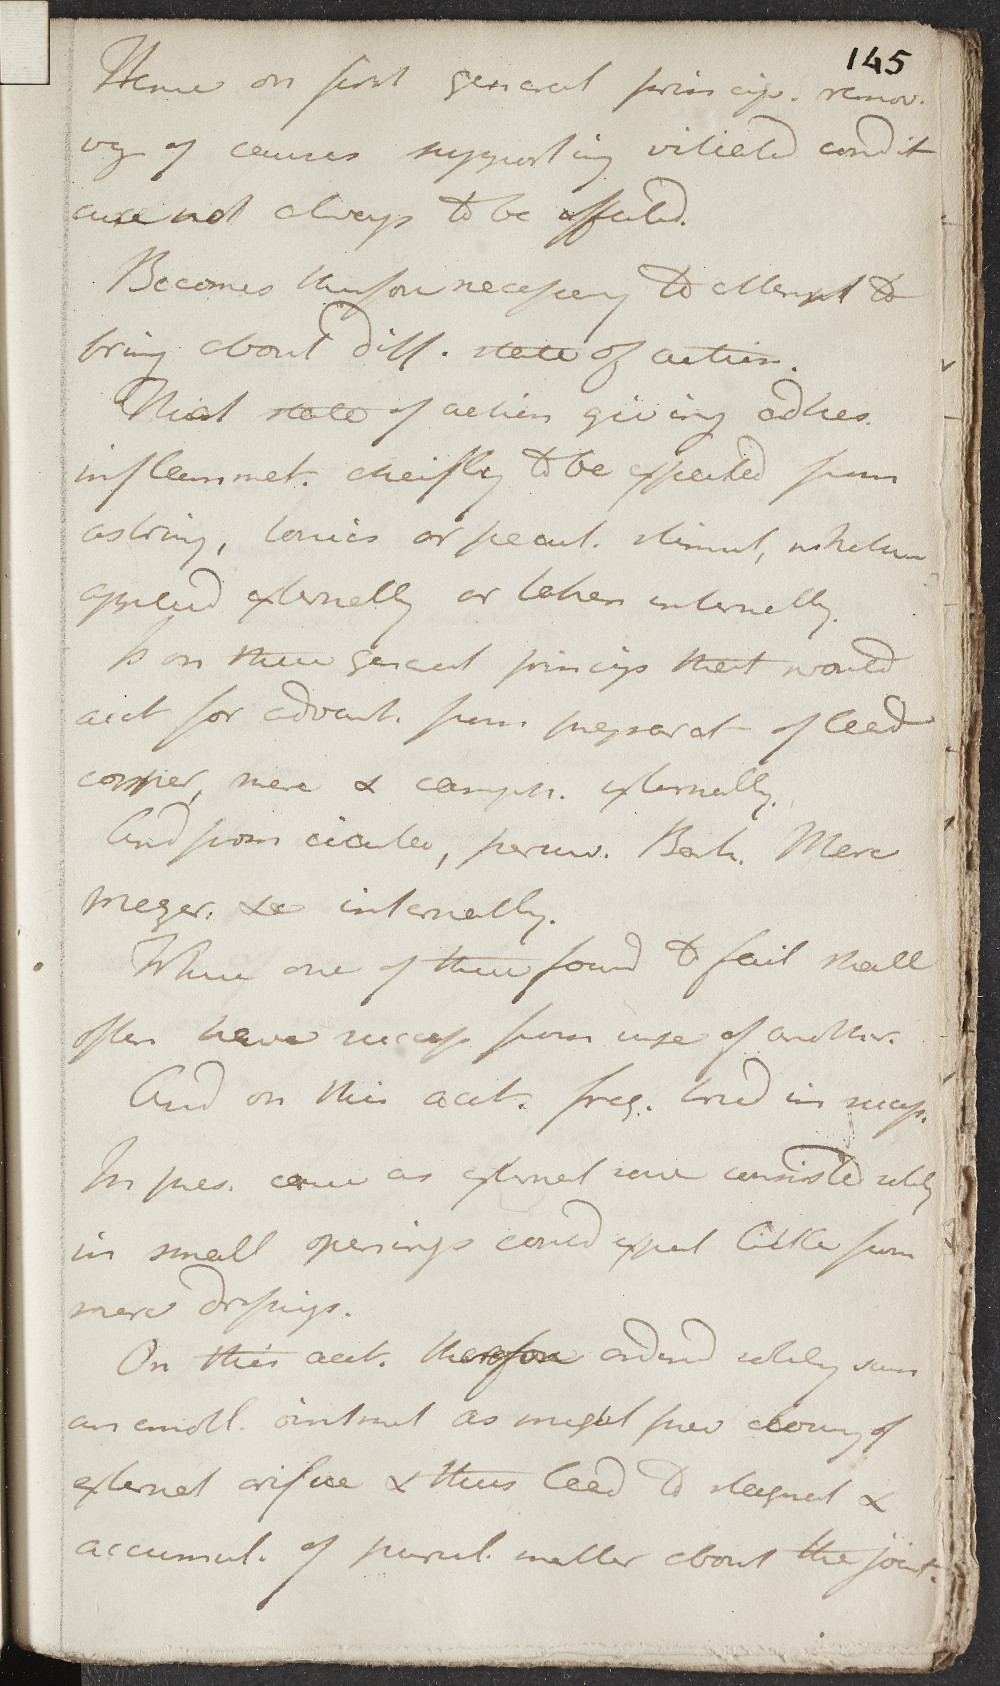 145
Hence on first general princip. remov.
ing of causes supporting vitiated condit
cure not always to be effected.
Becomes therefore necessary to attempt to
bring about diff. state of action.
That state of action giving adhes.
inflammat. cheifly to be expected from
astring, tonics or pecul. stimul, whether
applied externally or taken internally.
Is on these general princips that would
acct for advant. from preparat of lead
copper, merc & camph. externally.
And from cicuta, peruv. Bark. Merc
mezer. &c internally.
Where one of these found to fail shall
often have success from use of another.
And on this acct. freq. tried in success.
In pres. case as external sore consisted solely
in small openings could expect little from
mere dressings.
On this acct. therefore ordered solely such
an emoll. ointment as might prev closing of
external orifice & thus lead to stagnat &
accumul. of purul. matter about the joint.